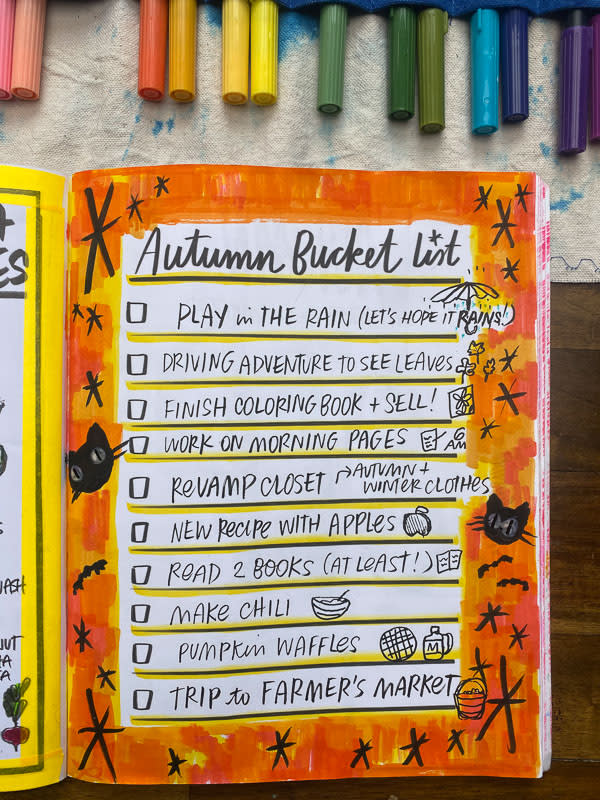 Autumn Bucket List
PLAY in THE RAIN (LET'S HOPE IT RAINS!)
DRIVING ADVENTURE TO SEE LEAVES
FINISH COLORING BOOK + SELL!
WORK ON MORNING PAGES AM
REVAMP CLOSET → AUTUMN +
WINTER CLOTHES
NEW RECIPE WITH APPLES
READ 2 BOOKS (AT LEAST!)
MAKE CHILI
PUMPKIN WAFFLES M
TRIP to FARMER'S MARKET